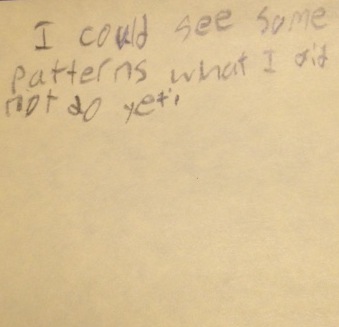 I could see some
patterns what I did
not do yet.